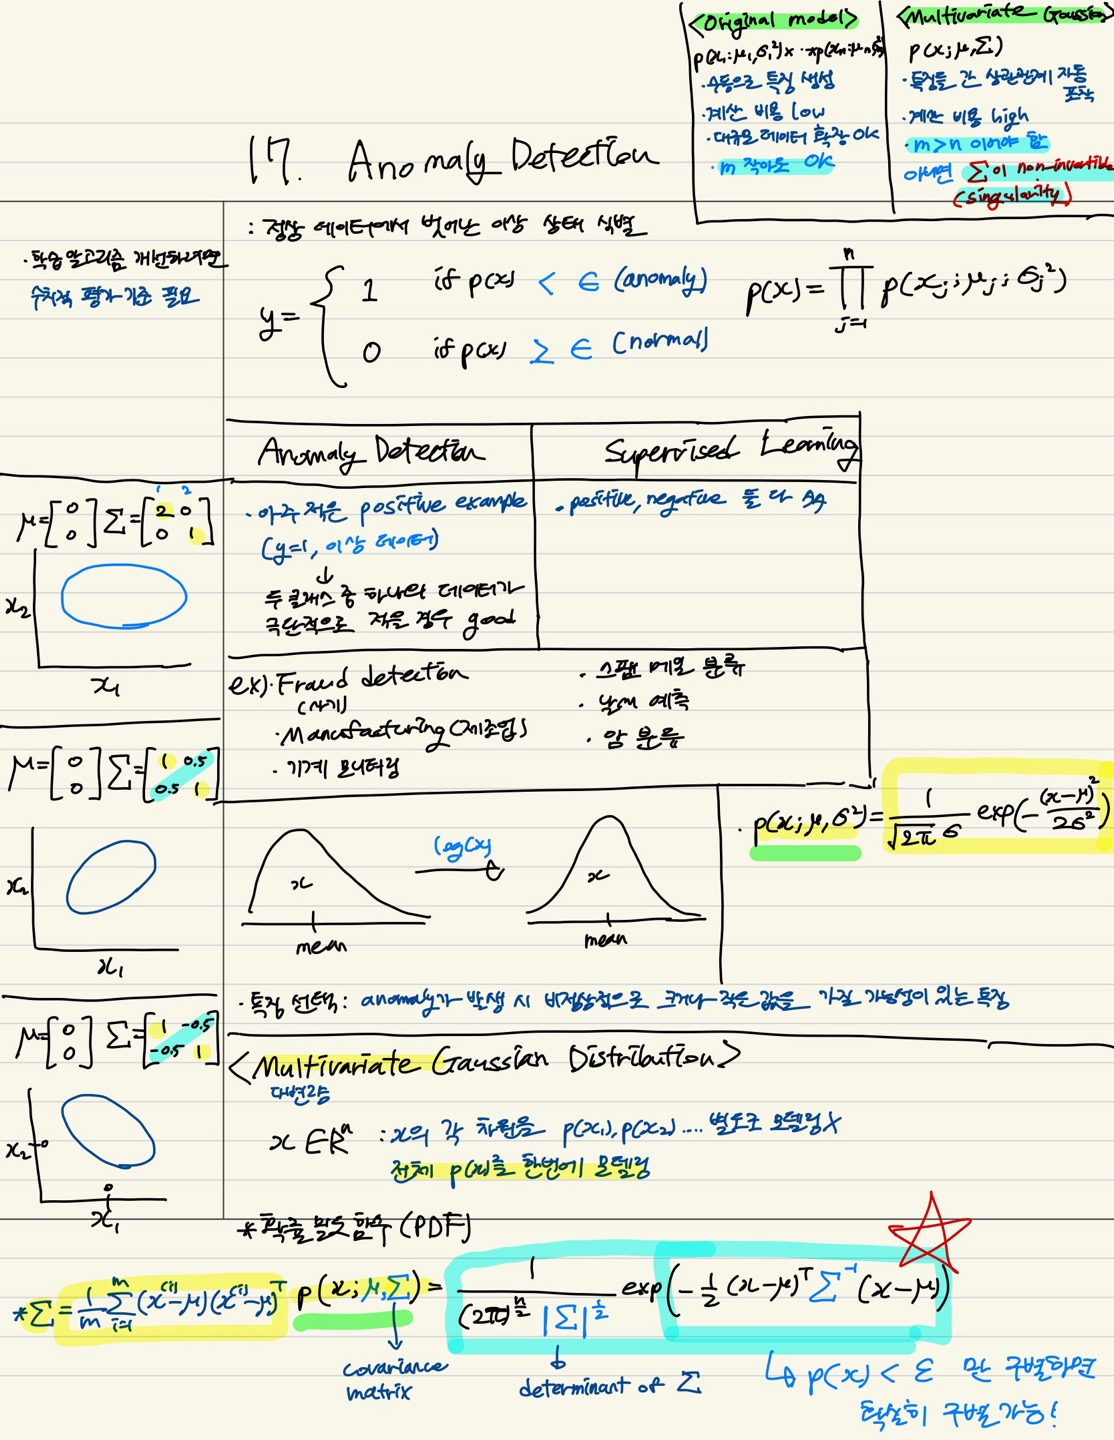 <Original model>
p(x₁;μ₁,σ₁²)× ··· ×p(xₙ;μₙ,σₙ²)
· 수동으로 특징 생성
· 계산 비용 low
· 대규모 데이터 확장 OK
· m 작아도 OK
<Multivariate Gaussian>
p(x;μ,Σ)
· 특징들 간 상관관계 자동
포착
· 계산 비용 high
· m>n 이어야 함
아니면 Σ이 non-invertible
(singularity)
17. Anomaly Detection
: 정상 데이터에서 벗어난 이상 상태 식별
· 학습 알고리즘 개선하려면
수치적 평가 기준 필요
y= { 1 if p(x) < ε (anomaly)
0 if p(x) ≥ ε (normal)
p(x)= ∏ⁿⱼ₌₁ p(xⱼ;μⱼ;σⱼ²)
Anomaly Detection
Supervised Learning
· 아주 적은 positive example
(y=1, 이상 데이터)
↓
두 클래스 중 하나의 데이터가
극단적으로 적을 경우 good
· positive, negative 둘 다
ex)· Fraud detection
(사기)
· Manufacturing (제조업)
· 기계 모니터링
· 스팸 메일 분류
· 날씨 예측
· 암 분류
μ=[0 0] Σ=[2 0
0 1]
1 2
x₂
x₁
μ=[0 0] Σ=[1 0.5
0.5 1]
x₂
x₁
μ=[0 0] Σ=[1 -0.5
-0.5 1]
x₂ 0
0
x₁
x
mean
log(x)
x
mean
· p(x;μ,σ²)= 1/(√2π σ) exp(-(x-μ)²/2σ²)
· 특징 선택: anomaly가 발생 시 비정상적으로 크거나 작은 값을 가질 가능성이 있는 특징
<Multivariate Gaussian Distribution>
다변량
x ∈ ℝⁿ : x의 각 차원을 p(x₁), p(x₂) .... 별도로 모델링 X
전체 p(x)를 한번에 모델링
* 확률 밀도 함수 (PDF)
* Σ = 1/m Σᵐᵢ₌₁ (x⁽ⁱ⁾-μ)(x⁽ⁱ⁾-μ)ᵀ
p(x;μ,Σ) = 1/((2π)^(n/2) |Σ|^(1/2)) exp(-1/2 (x-μ)ᵀ Σ⁻¹ (x-μ))
covariance
matrix
determinant of Σ
↳ p(x) < ε 만 구별하면
확실히 구별 가능!